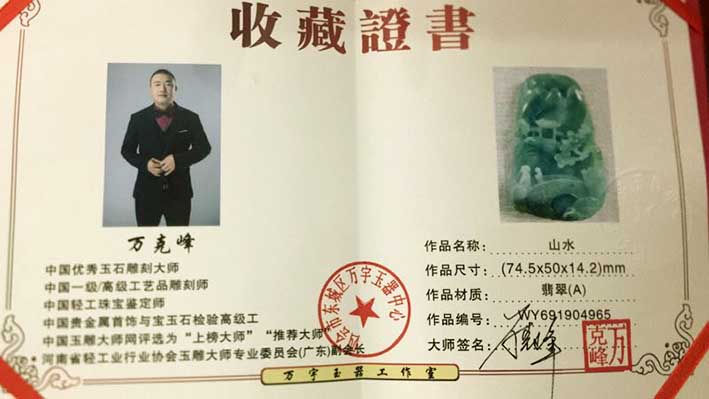 收藏證書
万克峰
中国优秀玉石雕刻大师
中国一级/高级工艺品雕刻师
中国轻工珠宝鉴定师
中国贵金属首饰与宝玉石检验高级工
中国玉雕大师网评选为“上榜大师”“推荐大师”
河南省轻工业行业协会玉雕大师专业委员会(广东)副会长
四会市东城区万宇玉器中心
作品名称: 山水
作品尺寸: (74.5x50x14.2)mm
作品材质: 翡翠(A)
作品编号: WY691904965
大师签名: 万克峰
万克峰
万宇玉器工作室